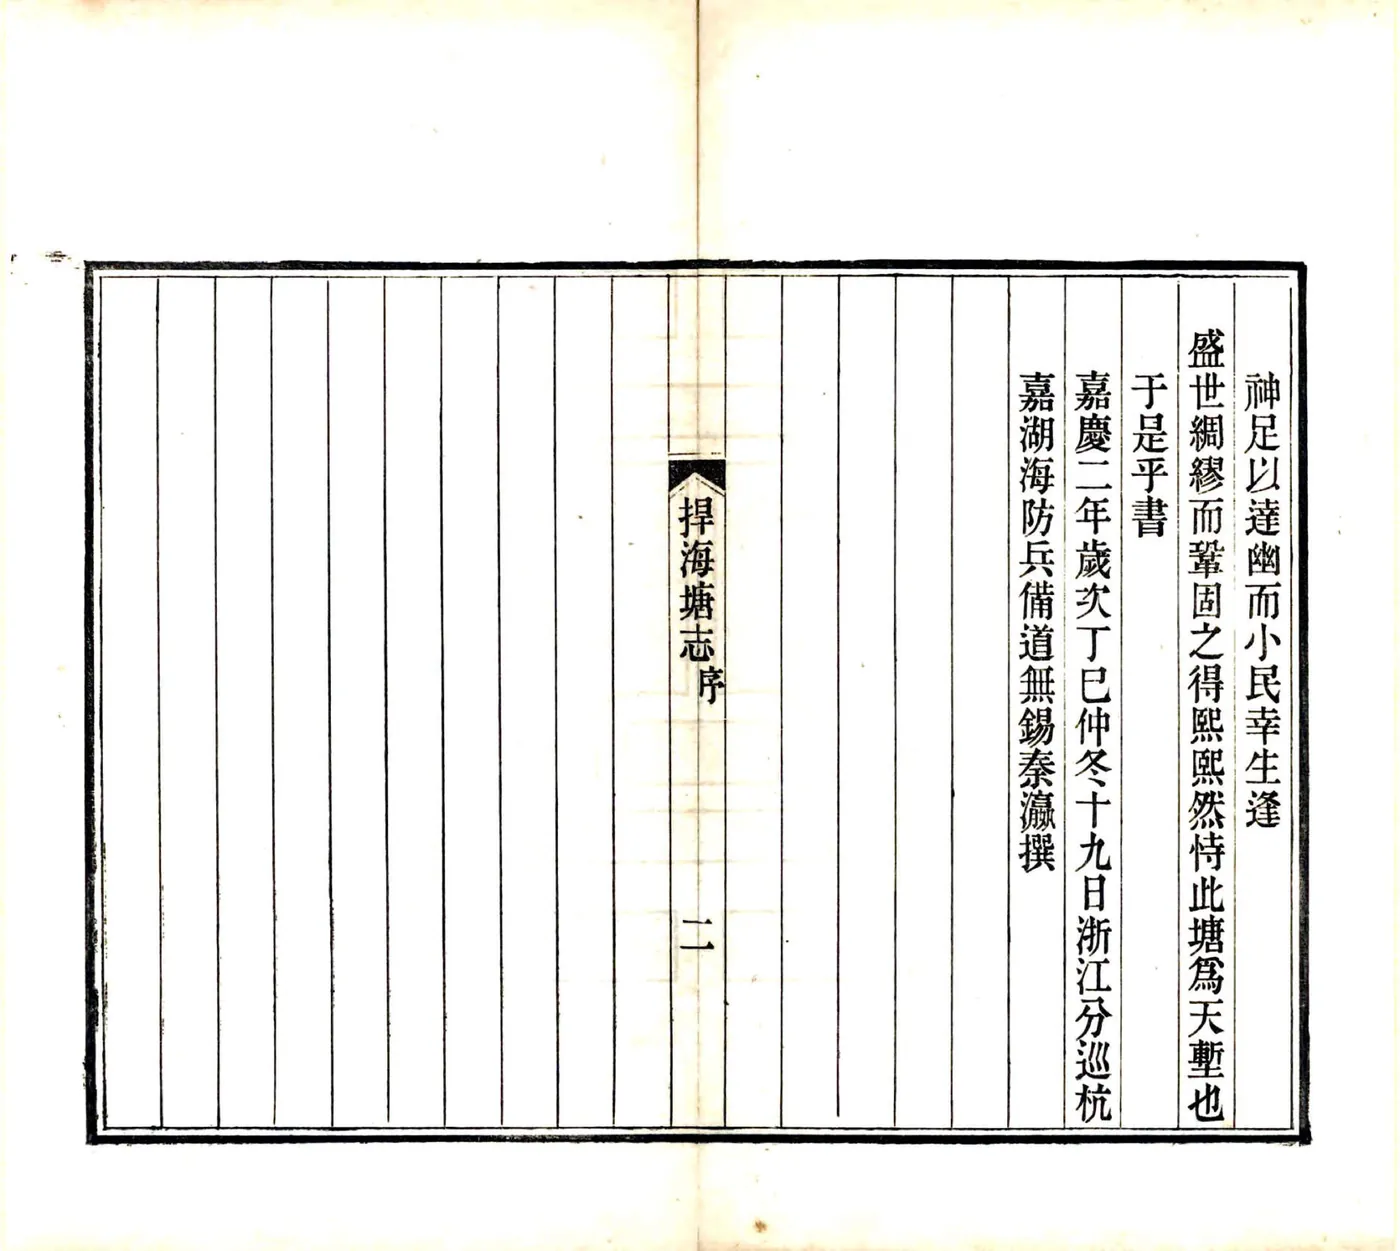 神足以達幽而小民幸生逢
盛世綢繆而鞏固之得熙熙然恃此塘爲天塹也
于是乎書
嘉慶二年歲次丁巳仲冬十九日浙江分巡杭
嘉湖海防兵備道無錫秦瀛撰
捍海塘志序
二